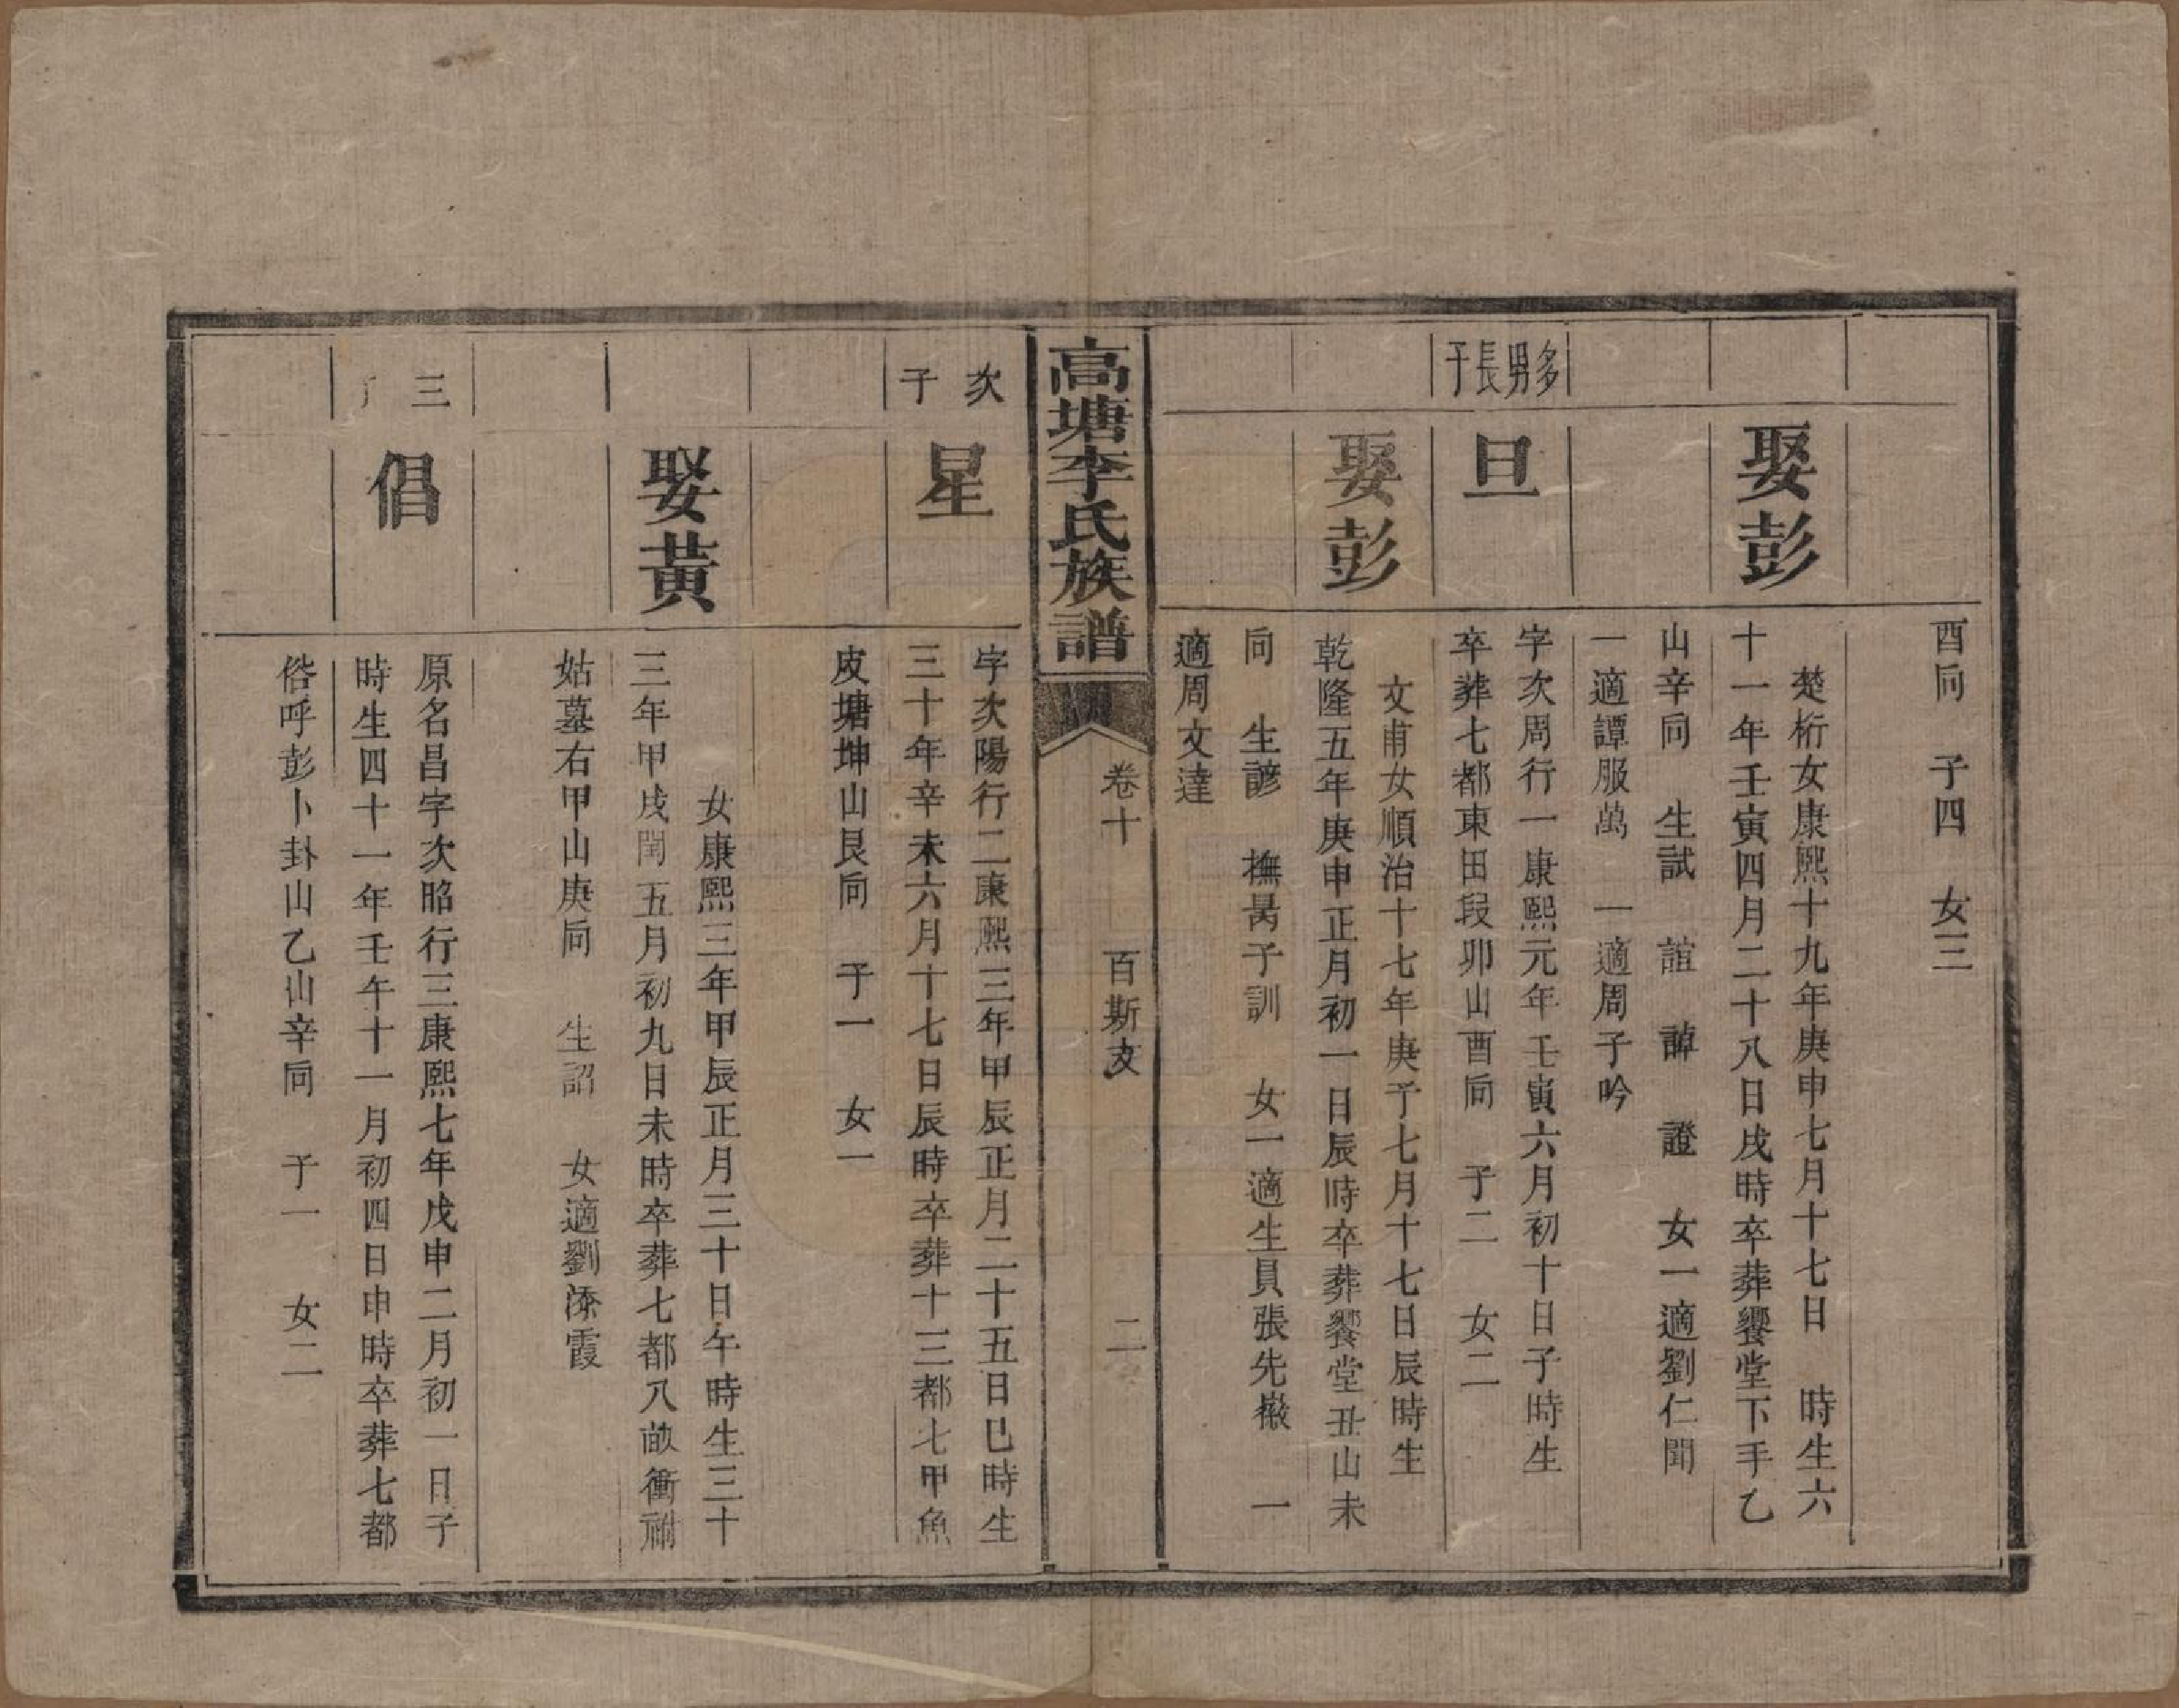 酉向　子四　女三
娶彭
楚桁女康熙十九年庚申七月十七日　時生六
十一年壬寅四月二十八日戌時卒葬饗堂下手乙
山辛向　生試　誼　諱　證　女一適劉仁聞
一適譚服萬　一適周子吟
多男長子
旦
字次周行一康熙元年壬寅六月初十日子時生
卒葬七都東田段卯山酉向　子二　女二
娶彭
文甫女順治十七年庚子七月十七日辰時生
乾隆五年庚申正月初一日辰時卒葬饗堂丑山未
向　生諺　撫勗子訓　女一適生員張先徽　一
適周文達
高塘李氏族譜
卷十　百斯支　二
次子
星
字次陽行二康熙三年甲辰正月二十五日巳時生
三十年辛未六月十七日辰時卒葬十三都七甲魚
皮塘坤山艮向　子一　女一
娶黃
女康熙三年甲辰正月三十日午時生三十
三年甲戌閏五月初九日未時卒葬七都八畝衝祔
姑墓右甲山庚向　生詔　女適劉添霞
三
倡
原名昌字次昭行三康熙七年戊申二月初一日子
時生四十一年壬午十一月初四日申時卒葬七都
俗呼彭卜卦山乙山辛向　子一　女二